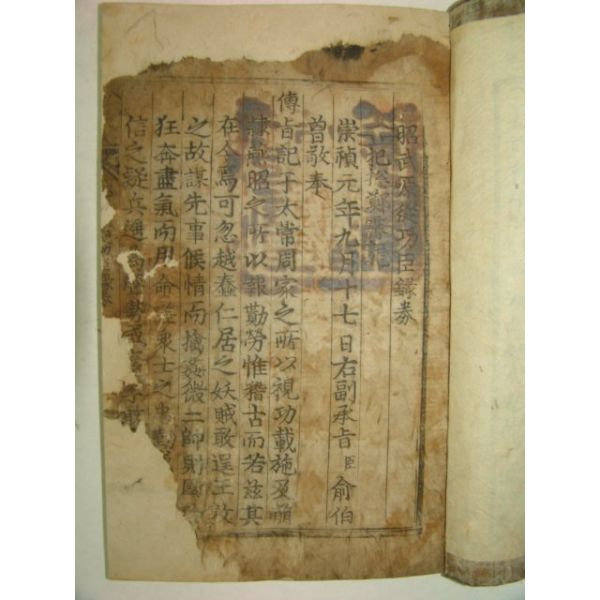 昭武原從功臣錄券
崇禎元年九月十七日右副承旨臣俞伯
曾敬奉
傳旨記于太常周家之所以視功載施及萌
隸燕昭之所以報勤勞惟稽古而若茲其
在今焉可忽越蠢仁居之妖賊敢逞王敦
之故謀先事候情而擒姦微二帥則
狂奔盡氣而用命衆士之忠
信之疑兵